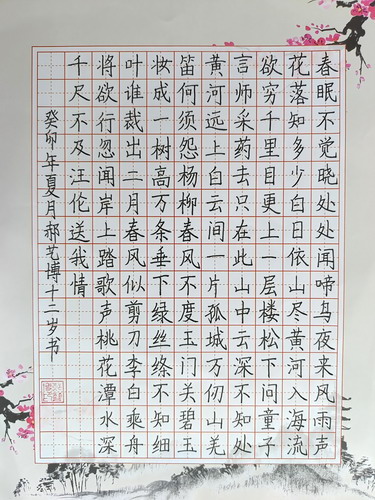 春眠不觉晓处处闻啼鸟夜来风雨声
花落知多少白日依山尽黄河入海流
欲穷千里目更上一层楼松下问童子
言师采药去只在此山中云深不知处
黄河远上白云间一片孤城万仞山羌
笛何须怨杨柳春风不度玉门关碧玉
妆成一树高万条垂下绿丝绦不知细
叶谁裁出二月春风似剪刀李白乘舟
将欲行忽闻岸上踏歌声桃花潭水深
千尺不及汪伦送我情
癸卯年夏月郝艺博十二岁书